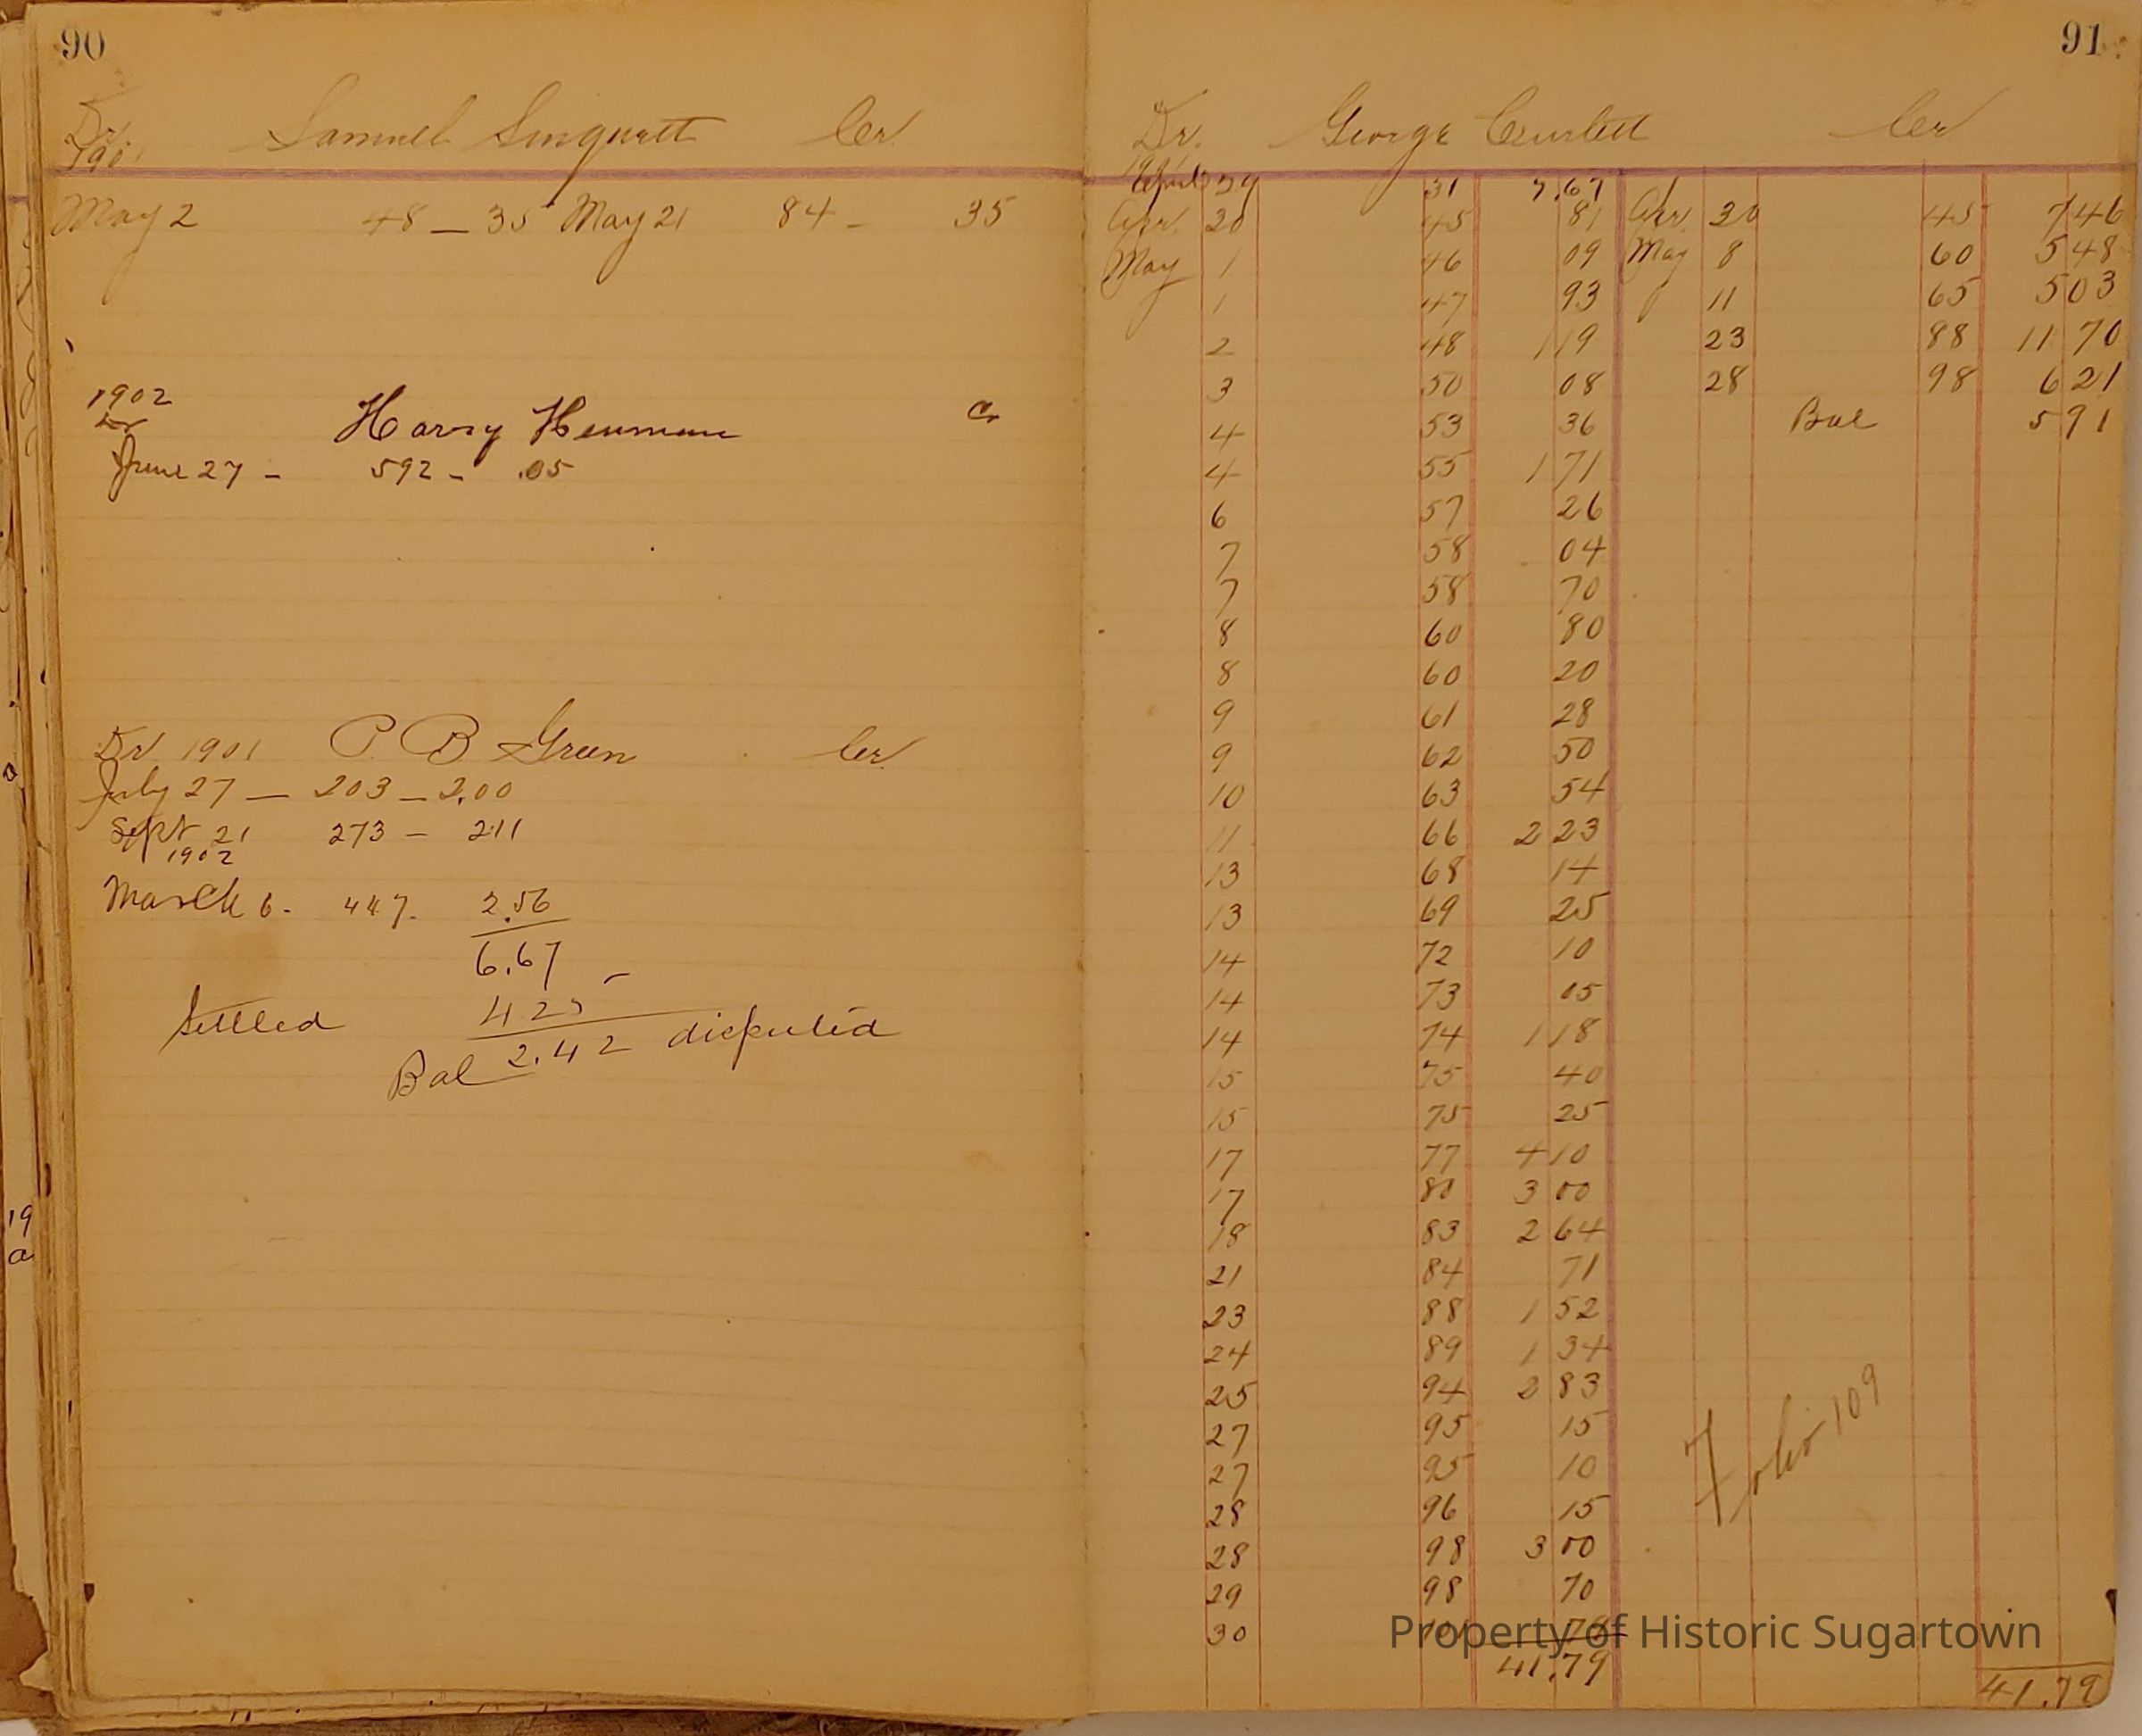 90
Dr. Samuel Singuett Cr
190
May 2 48 — 35 May 21 84 — 35
1902
Dr Harry Cr
June 27 — 592 — .05
Dr 1901 P. B Green Cr.
July 27 — 203 — 2.00
Sept 21 273 — 2.11
1902
March 6. 447. 2.56
6.67
Settled 4 25
Bal 2.42 disputed
19
a
91
Dr. George Cr
April 29 31 7.67
Apr. 20 45 81 Apr. 30 45 7 46
May 1 46 09 May 8 60 5 48
1 47 93 11 65 5 03
2 48 1 19 23 88 11 70
3 50 08 28 98 6 21
4 53 36 Bal 5 91
4 55 1 71
6 57 26
7 58 04
7 58 70
8 60 80
8 60 20
9 61 28
9 62 50
10 63 54
11 66 2 23
13 68 14
13 69 25
14 72 10
14 73 05
14 74 1 18
15 75 40
15 75 25
17 77 4 10
17 80 3 00
18 83 2 64
21 84 71
23 88 1 52
24 89 1 34
25 94 2 83
27 95 15
27 95 10
28 96 15
28 98 3 00
29 98 70
30 101
41.79 41.79
Folio 109
Property of Historic Sugartown